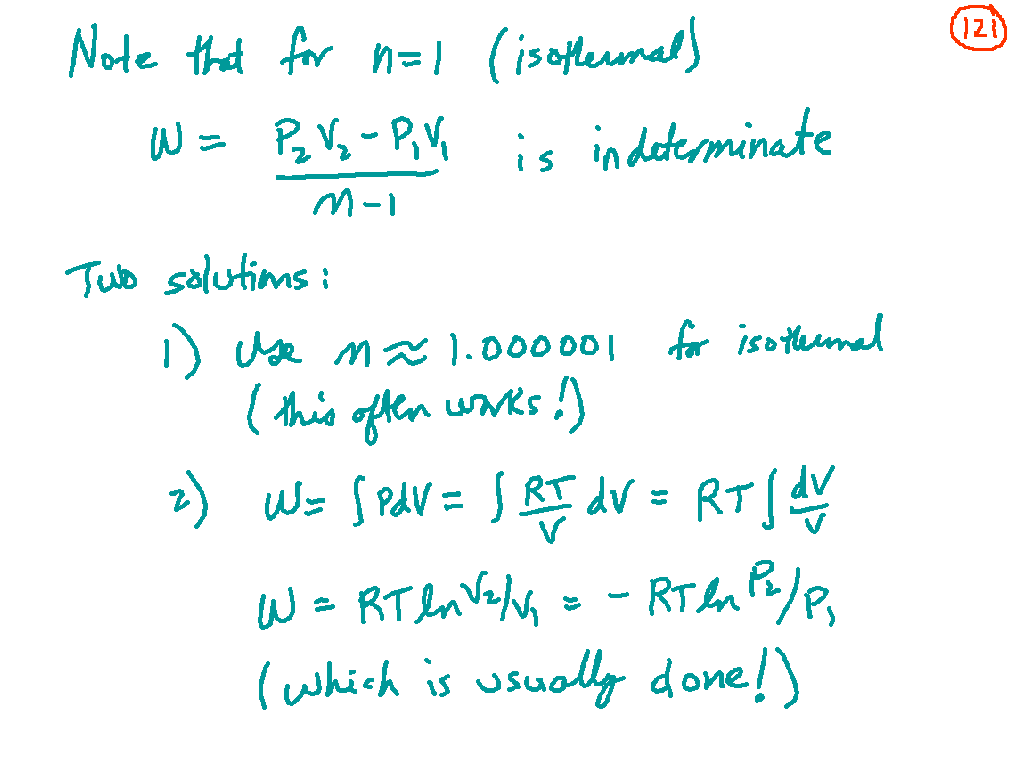 121
Note that for n=1 (isothermal)
W = P₂V₂ - P₁V₁ / n-1 is indeterminate
Two solutions:
1) Use n ≈ 1.000001 for isothermal
(this often works!)
2) W = ∫PdV = ∫ RT/V dV = RT ∫ dV/V
W = RT ln V₂/V₁ = - RT ln P₂/P₁
(which is usually done!)